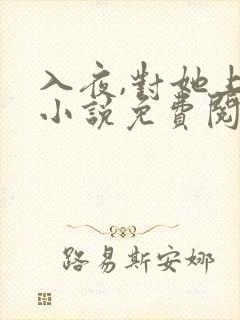 入夜,對她上
小說免費閱
路易斯安娜